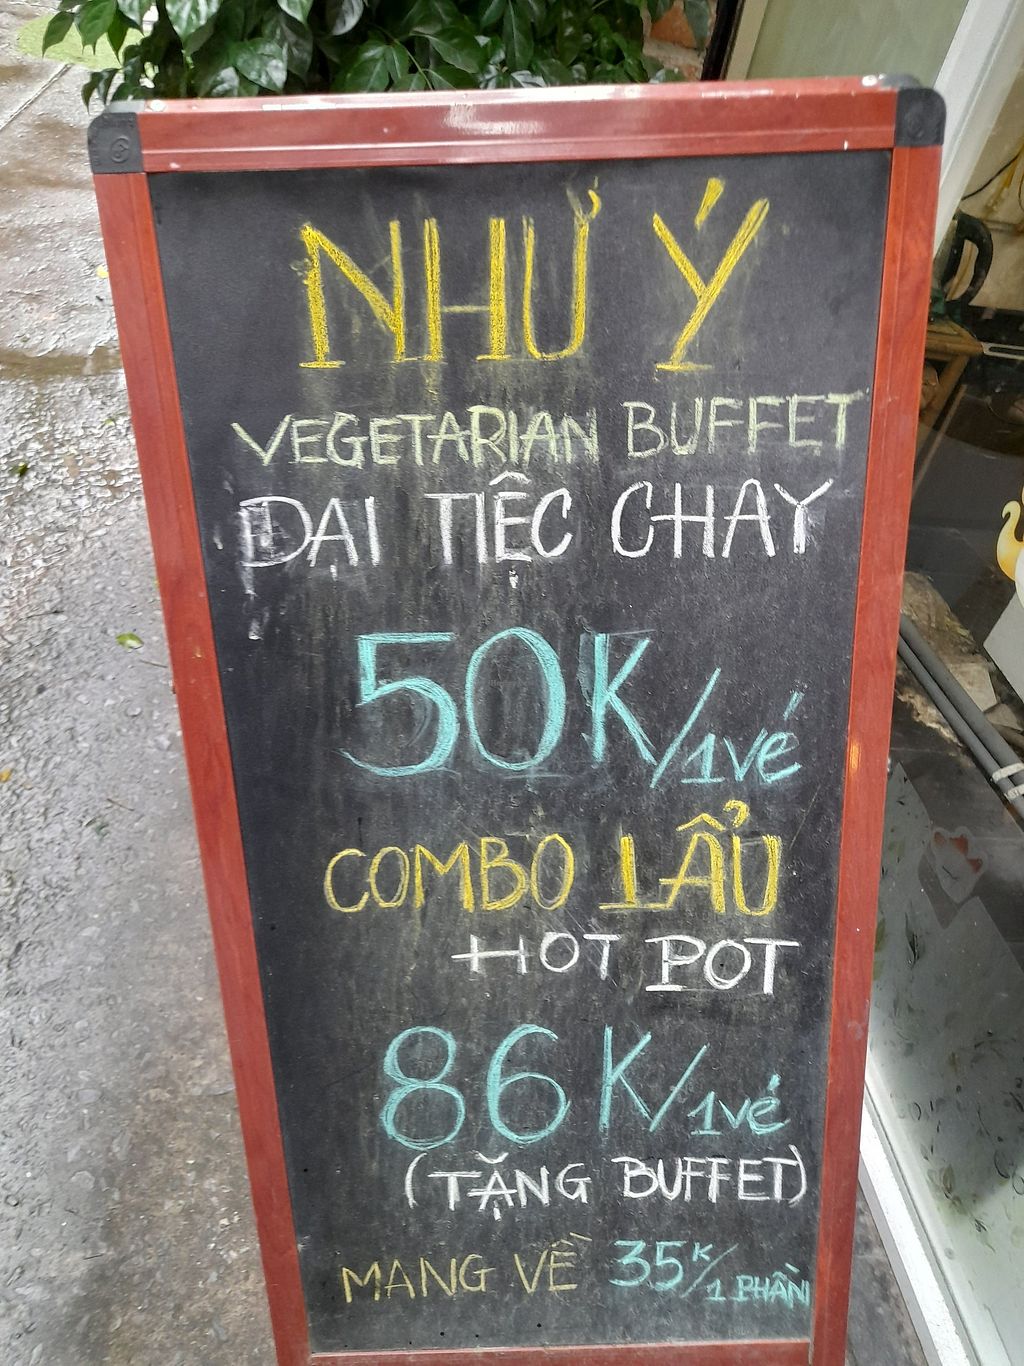 NHƯ Ý
VEGETARIAN BUFFET
ĐẠI TIỆC CHAY
50K/1vé
COMBO LẨU
HOT POT
86K/1vé
(TẶNG BUFFET)
MANG VỀ 35K/1 PHẦN